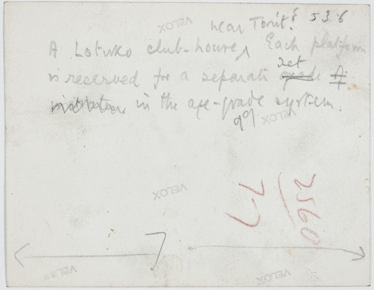 near Torit. 53.6
A Lotuko club-house, Each platform
is reserved for a separate set
in the age-grade system.
VELOX
VELOX
VELOX
VELOX
VELOX
2560
77